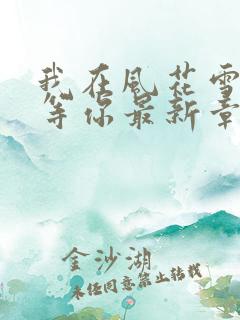 我在风花雪
等你最新章
金沙湖
未经同意禁止转载